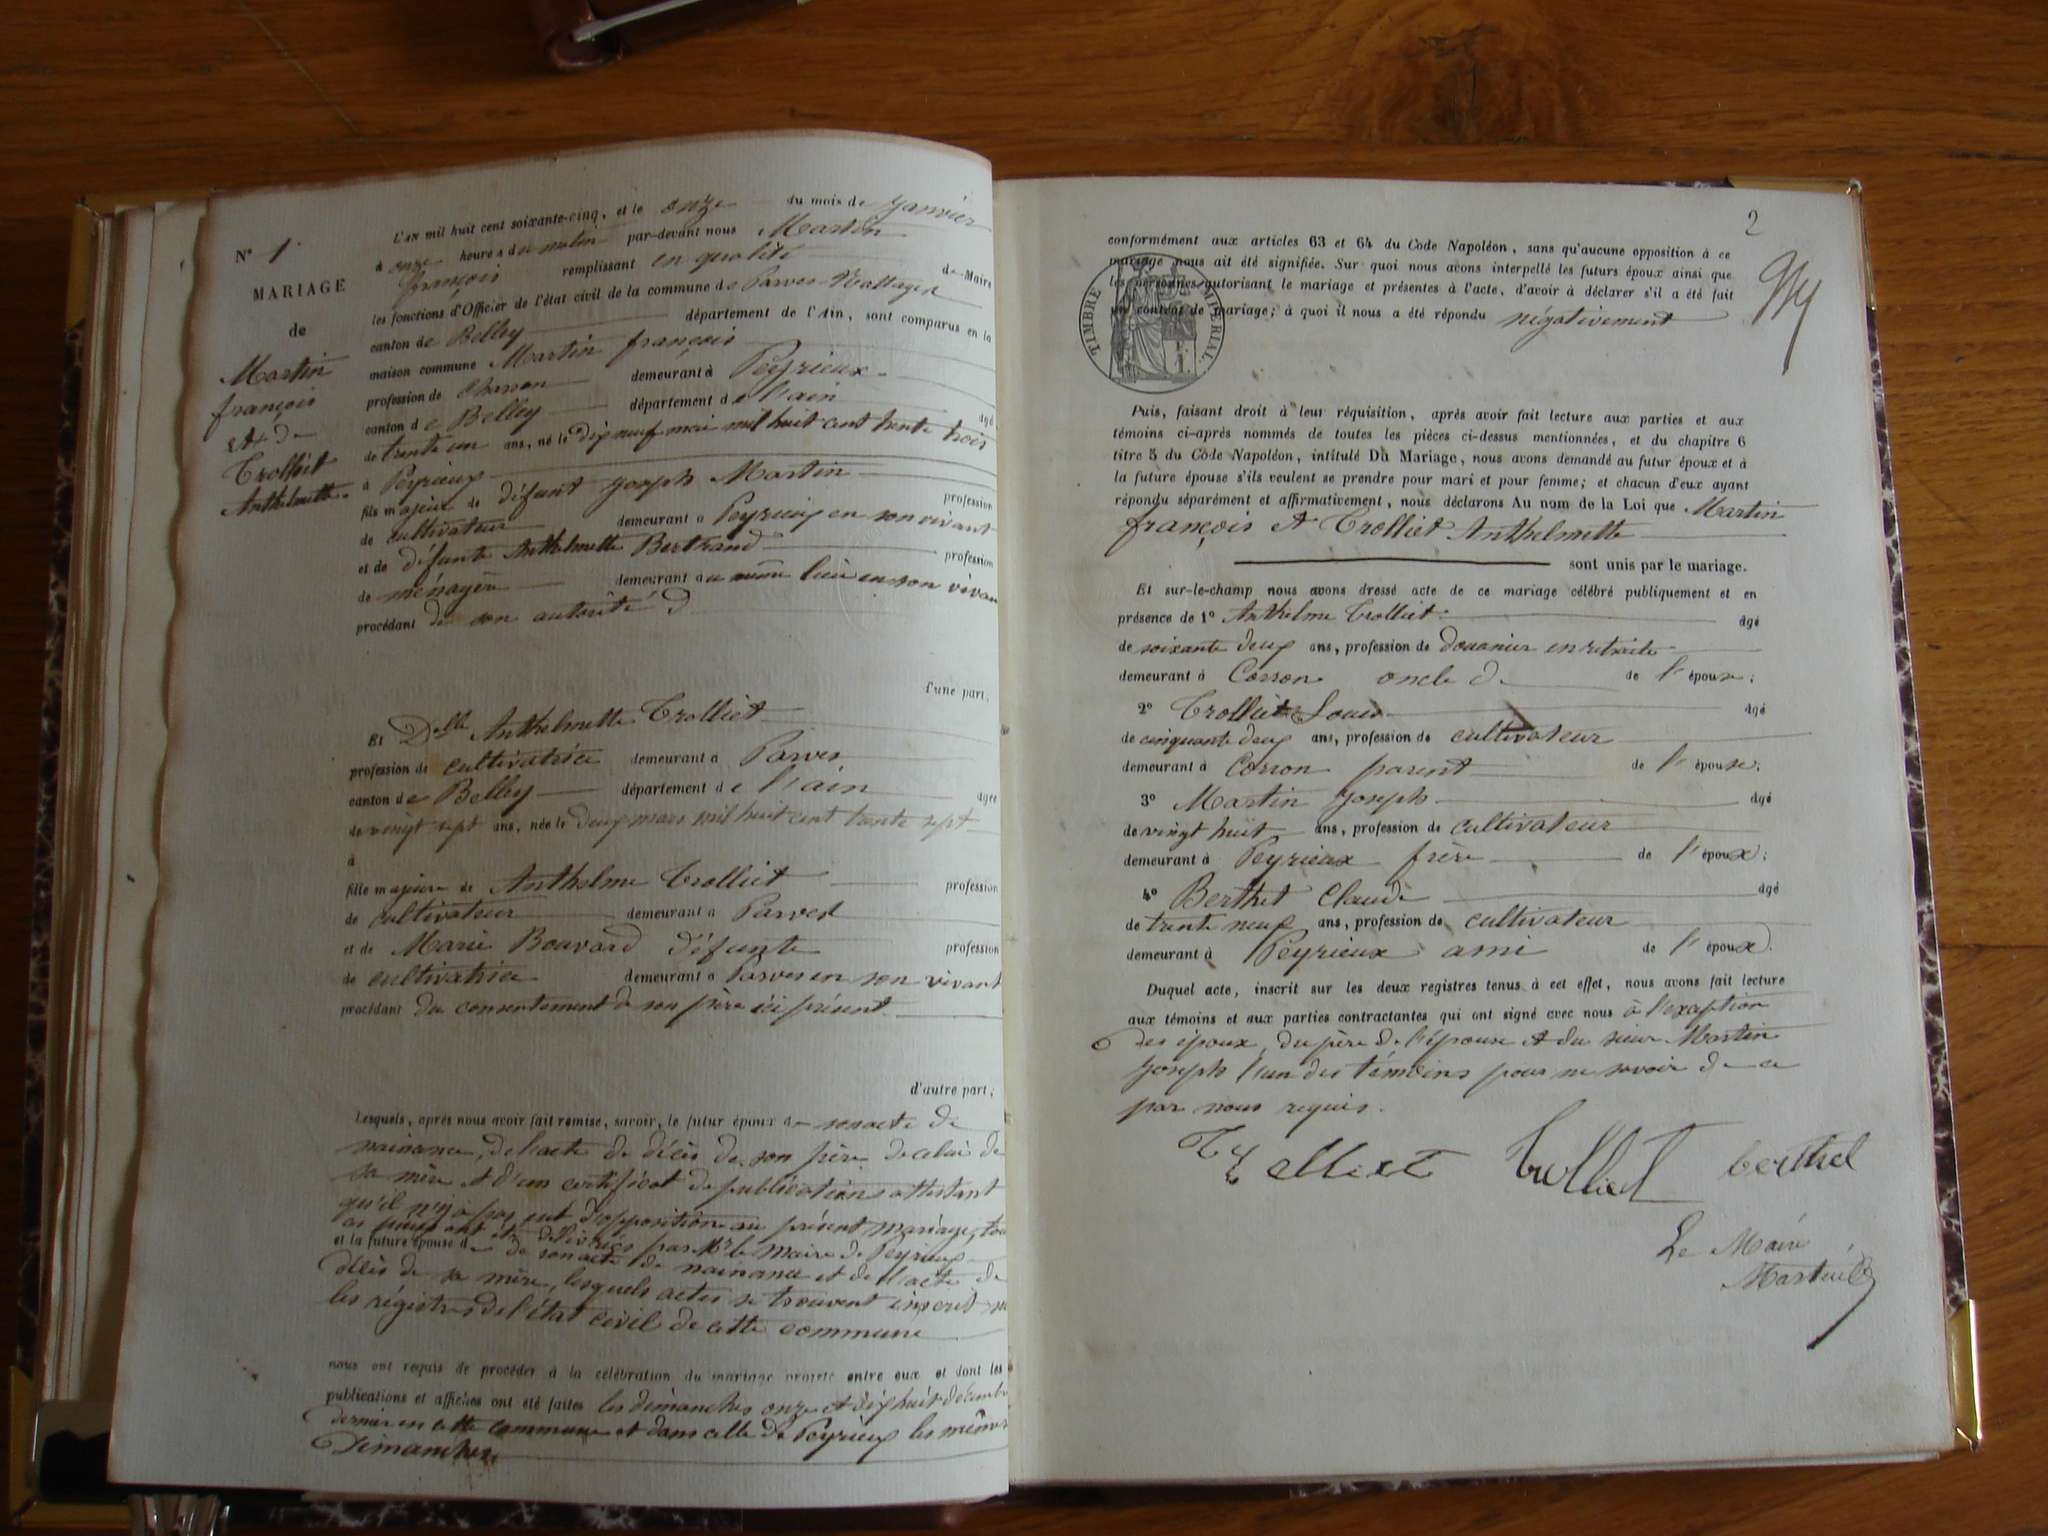 N° 1.
MARIAGE
de
Martin
françois
et de
Trolliet
Anthelmette.
L'AN mil huit cent soixante-cinq, et le onze du mois de janvier
à onze heures du matin par-devant nous Martin
françois remplissant en qualité de Maire
les fonctions d'Officier de l'état civil de la commune de Parves-Nattages
canton de Belley département de l'Ain, sont comparus en la
maison commune Martin françois
profession de demeurant à Peyrieux
canton de Belley département de l'ain âgé
de trente un ans, né le dix neuf mai mil huit cent trente trois
à Peyrieux
fils majeur de défunt joseph Martin profession
de cultivateur demeurant à Peyrieux en son vivant
et de défunte Anthelmette Bertrand profession
de ménagère demeurant au même lieu en son vivan
procédant de son autorité d
d'une part.
Et Delle Anthelmette Trolliet
profession de cultivatrice demeurant à Parves
canton de Belley département de l'ain âgée
de vingt sept ans, née le deux mars mil huit cent trente sept
à
fille majeure de Anthelme Trolliet profession
de cultivateur demeurant à Parves
et de Marie Bouvard défunte profession
de cultivatrice demeurant à Parves en son vivant
procédant du consentement de son père ici présent
d'autre part;
Lesquels, après nous avoir fait remise, savoir, le futur époux de son acte de
naissance, de l'acte de décès de son père de celui de
sa mère et d'un certificat de publications attestant
qu'il n'y a pas eut d'opposition au présent mariage, tou
ces pièces ont été délivrées par Mr le maire de Peyrieux
et la future épouse de de son acte de naissance et de l'acte de
décès de sa mère, lesquels actes se trouvent inscrit
les régistres de l'état civil de cette commune
nous ont requis de procéder à la célébration du mariage projeté entre eux et dont les
publications et affiches ont été faites les dimanches onze et dix huit décembre
dernier en cette commune et dans celle de Peyrieux les mêmes
Dimanches
2
conformément aux articles 63 et 64 du Code Napoléon, sans qu'aucune opposition à ce
mariage nous ait été signifiée. Sur quoi nous avons interpellé les futurs époux ainsi que
les personnes autorisant le mariage et présentes à l'acte, d'avoir à déclarer s'il a été fait
un contrat de mariage; à quoi il nous a été répondu négativement
TIMBRE IMPÉRIAL.
Puis, faisant droit à leur réquisition, après avoir fait lecture aux parties et aux
témoins ci-après nommés de toutes les pièces ci-dessus mentionnées, et du chapitre 6
titre 5 du Code Napoléon, intitulé Du Mariage, nous avons demandé au futur époux et à
la future épouse s'ils veulent se prendre pour mari et pour femme; et chacun d'eux ayant
répondu séparément et affirmativement, nous déclarons Au nom de la Loi que Martin
françois et Trolliet Anthelmette
sont unis par le mariage.
Et sur-le-champ nous avons dressé acte de ce mariage célébré publiquement et en
présence de 1° Anthelme Trolliet âgé
de soixante deux ans, profession de douanier en retraite
demeurant à Corron oncle d de l'épouse;
2° Trolliet Louis âgé
de cinquante deux ans, profession de cultivateur
demeurant à Corron parent de l'épouse;
3° Martin joseph âgé
de vingt huit ans, profession de cultivateur
demeurant à Peyrieux frère de l'époux;
4° Berthet Claude âgé
de trente neuf ans, profession de cultivateur
demeurant à Peyrieux ami de l'époux.
Duquel acte, inscrit sur les deux registres tenus à cet effet, nous avons fait lecture
aux témoins et aux parties contractantes qui ont signé avec nous à l'exception
des époux, du père de l'épouse et du sieur Martin
joseph l'un des témoins pour ne savoir de ce
par nous requis.
Trolliet berthet
Le Maire
Martin